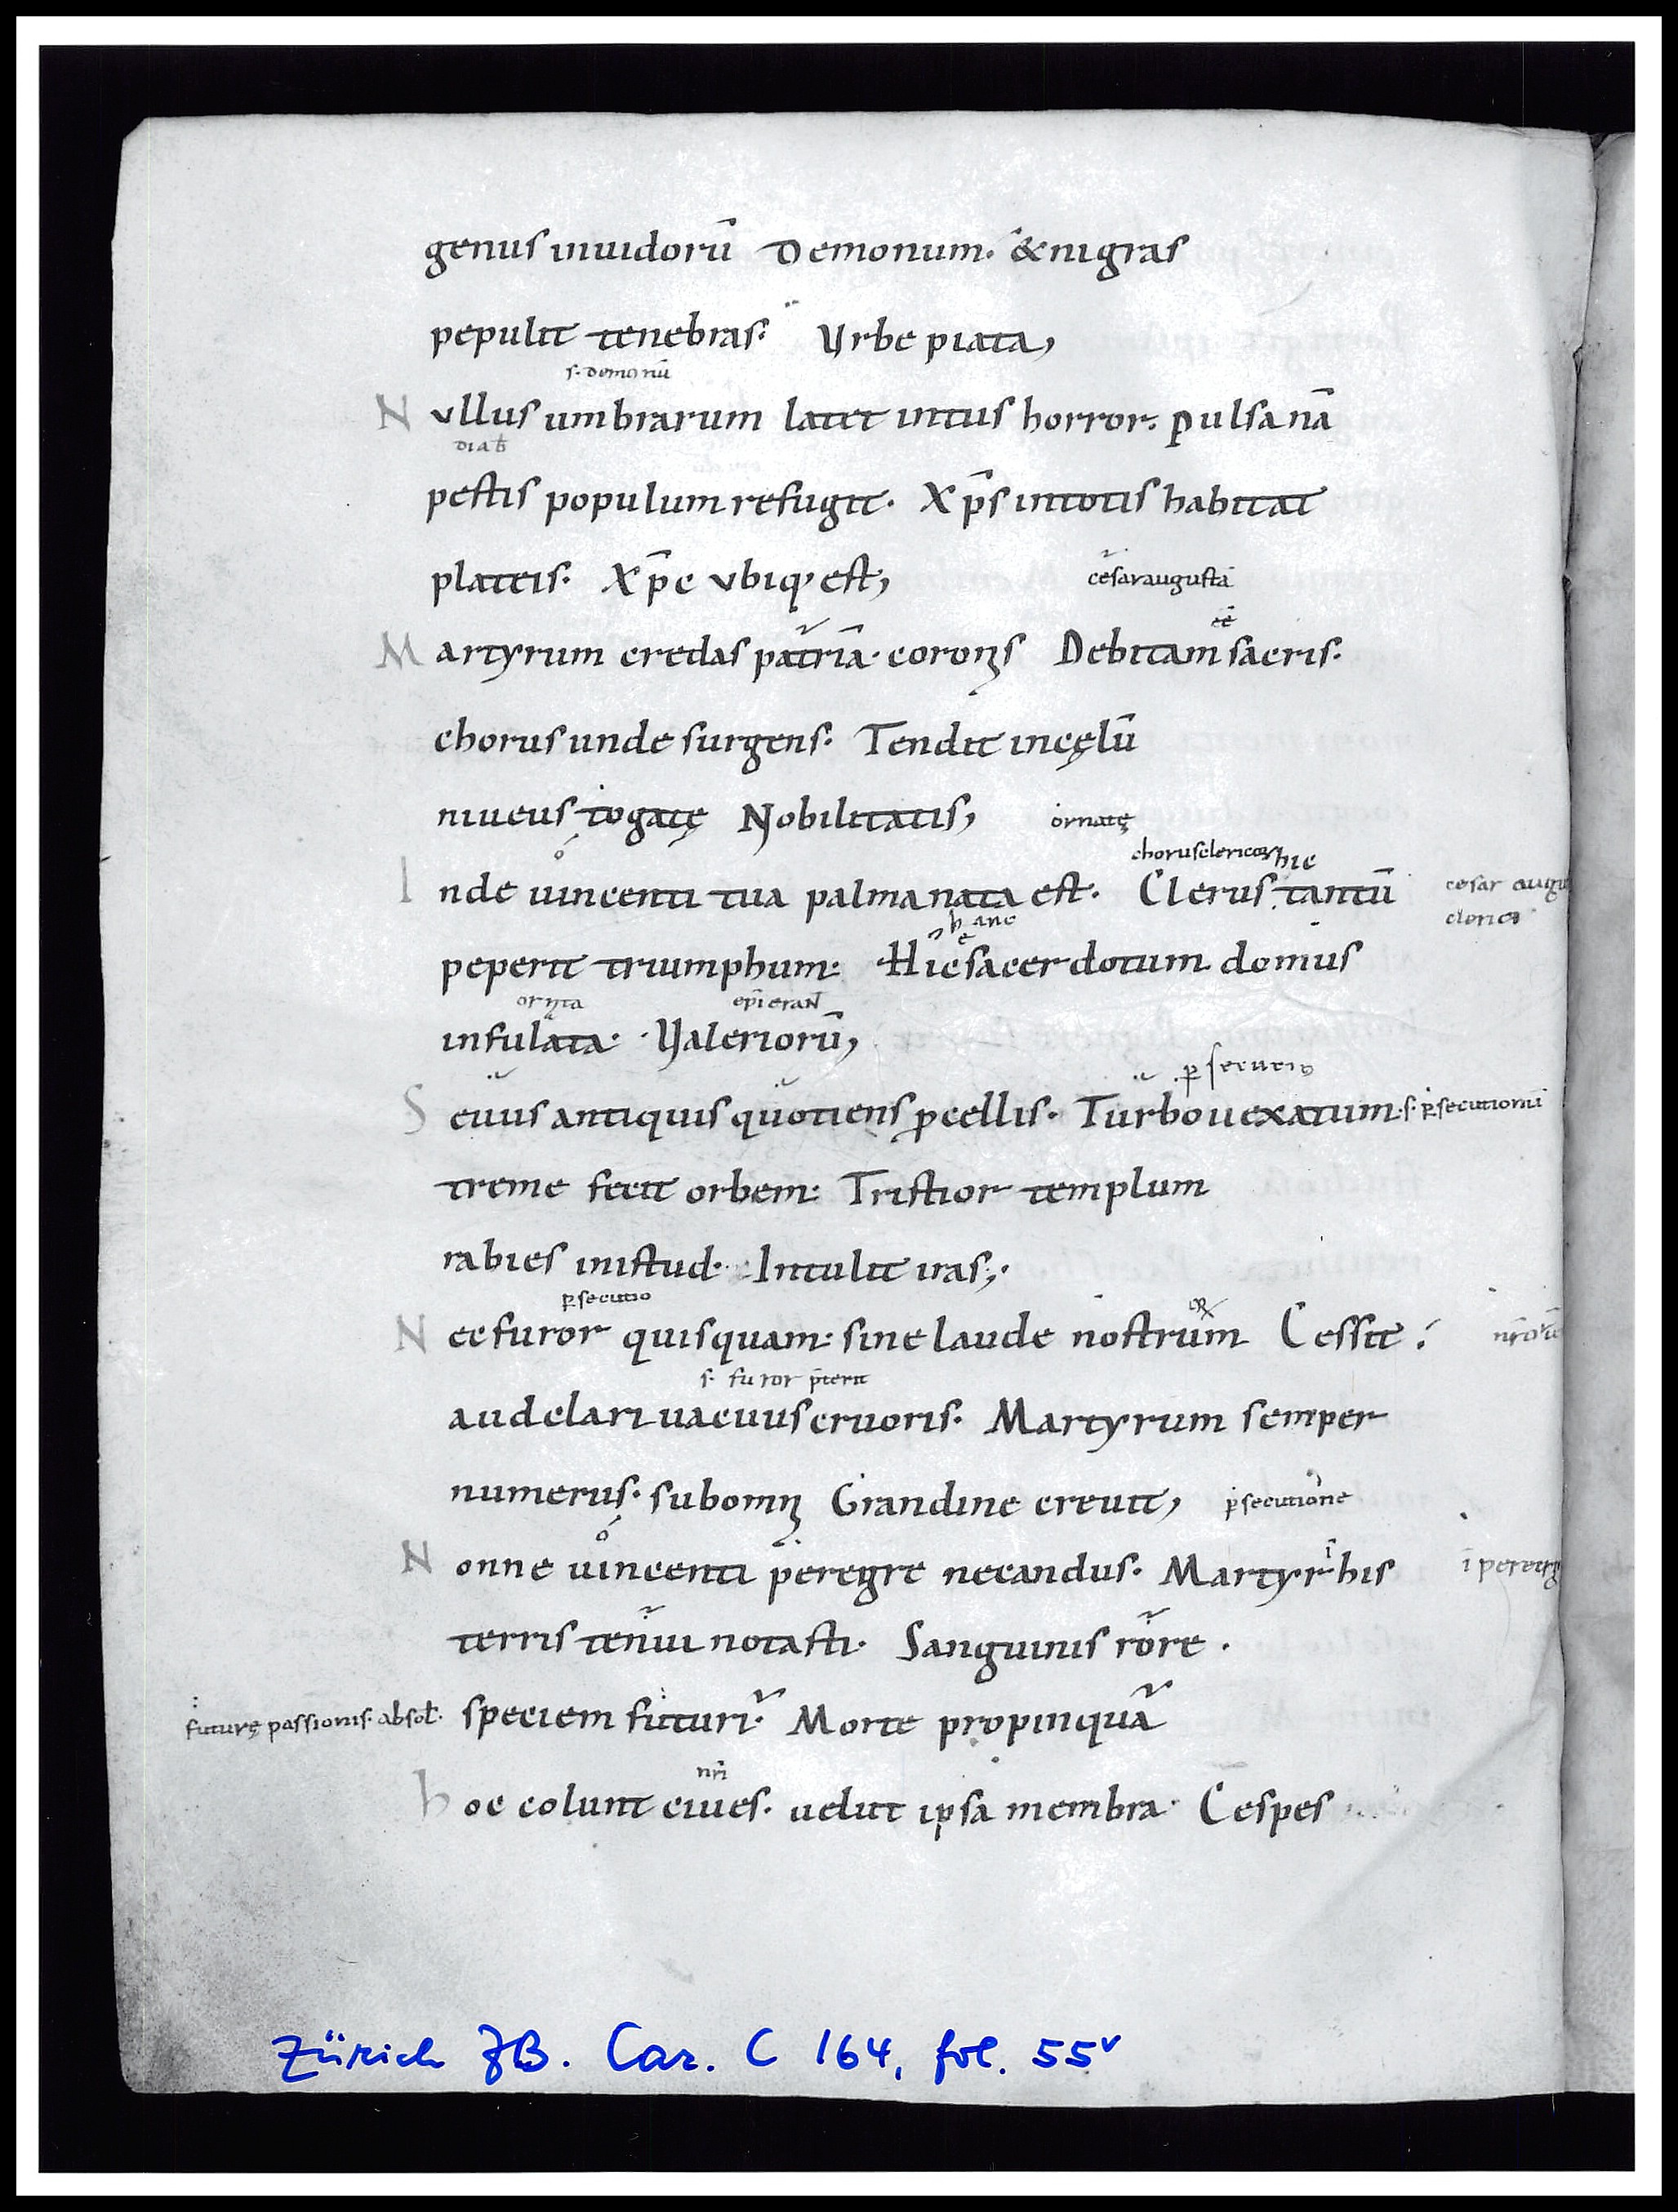 genus inuidorū Demonum. & nigras
pepulit tenebras. Vrbe piata,
s. demonū
Nvllus umbrarum latet intus horror. pulsa nā
diab̄
pestis populum refugit. Xp̄s intotis habitat
plateis. Xp̄c vbiq, est,
cesaraugustā
ēē
Martyrum credas patriā. coronis Debitam sacris.
chorus unde surgens. Tendit incęlū
niueus togatę Nobilitatis,
ornatę
chorusclericoꝝ hic
ó
Inde uincenti tua palma nata est. Clerus tantū
cesar augu
clerico
hanc
peperit triumphum: Hic sacerdotum domus
ornata
ep̄i eraN̄
infulata. Valeriorū,
ꝑsecutio
Seuus antiquis quotiens ꝓcellis. Turbo uexatum. s. ꝑsecutionū
treme fecit orbem: Tristior templum
rabies inistud. Intulit iras;.
ꝑsecutio
Nec furor quisquam: sine laude nostrum Cessit.
s. furor p̄terit
aud clari uacuus cruoris. Martyrum semper
numerus. subomni Grandine creuit,
ꝑsecutione
ó
Nonne uincenti peregre necandus. Martyr his
ī
terris tenui notasti. Sanguinis rore.
futurę passionis. absoł.
speciem futuri. Morte propinquā
nr̄i
hoc colunt ciues. uelut ipsa membra. Cespes
Zürich ZB. Car. C 164, fol. 55v